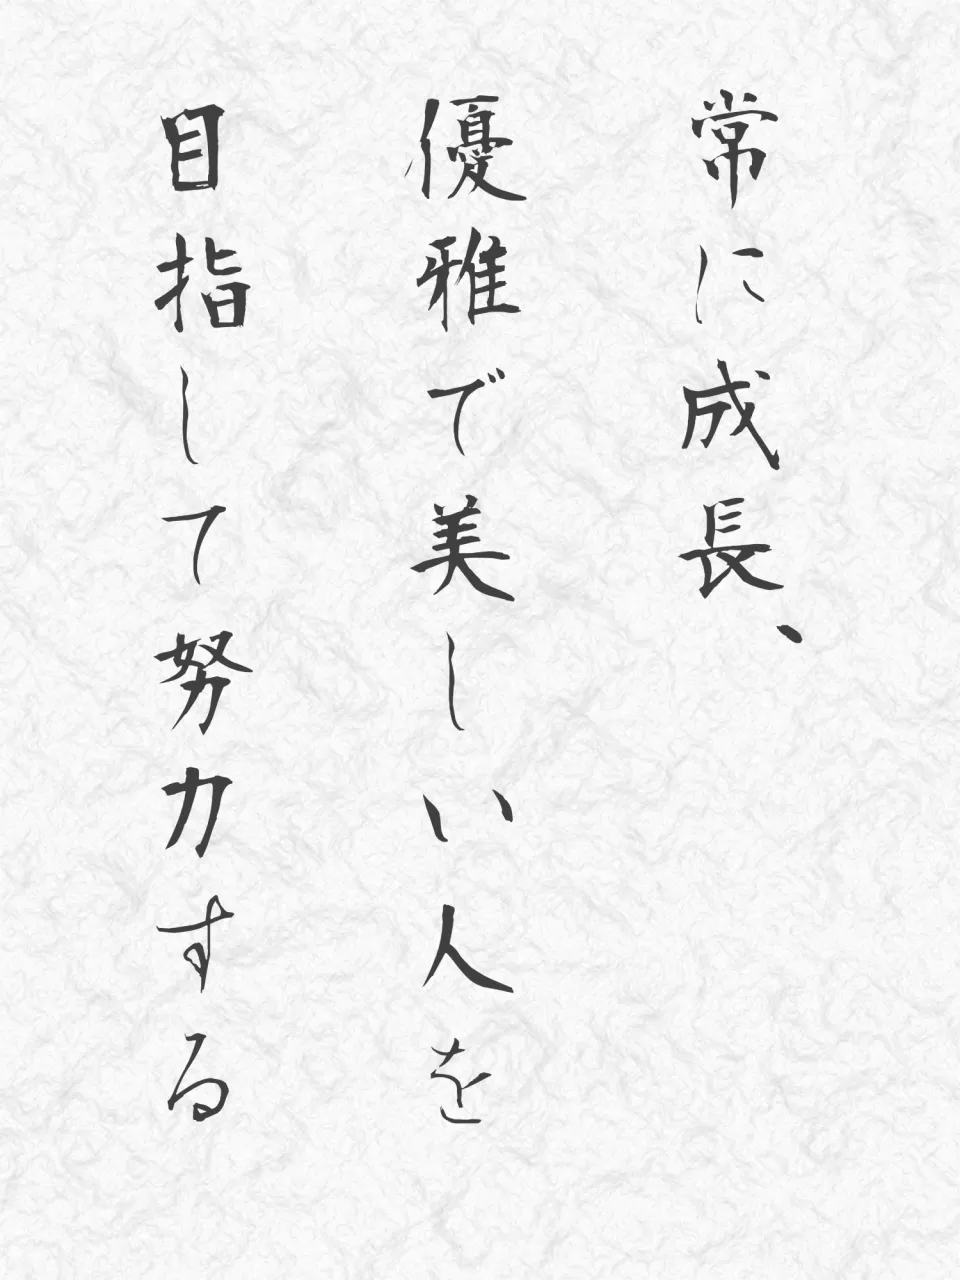 常に成長、
優雅で美しい人を
目指して努力する